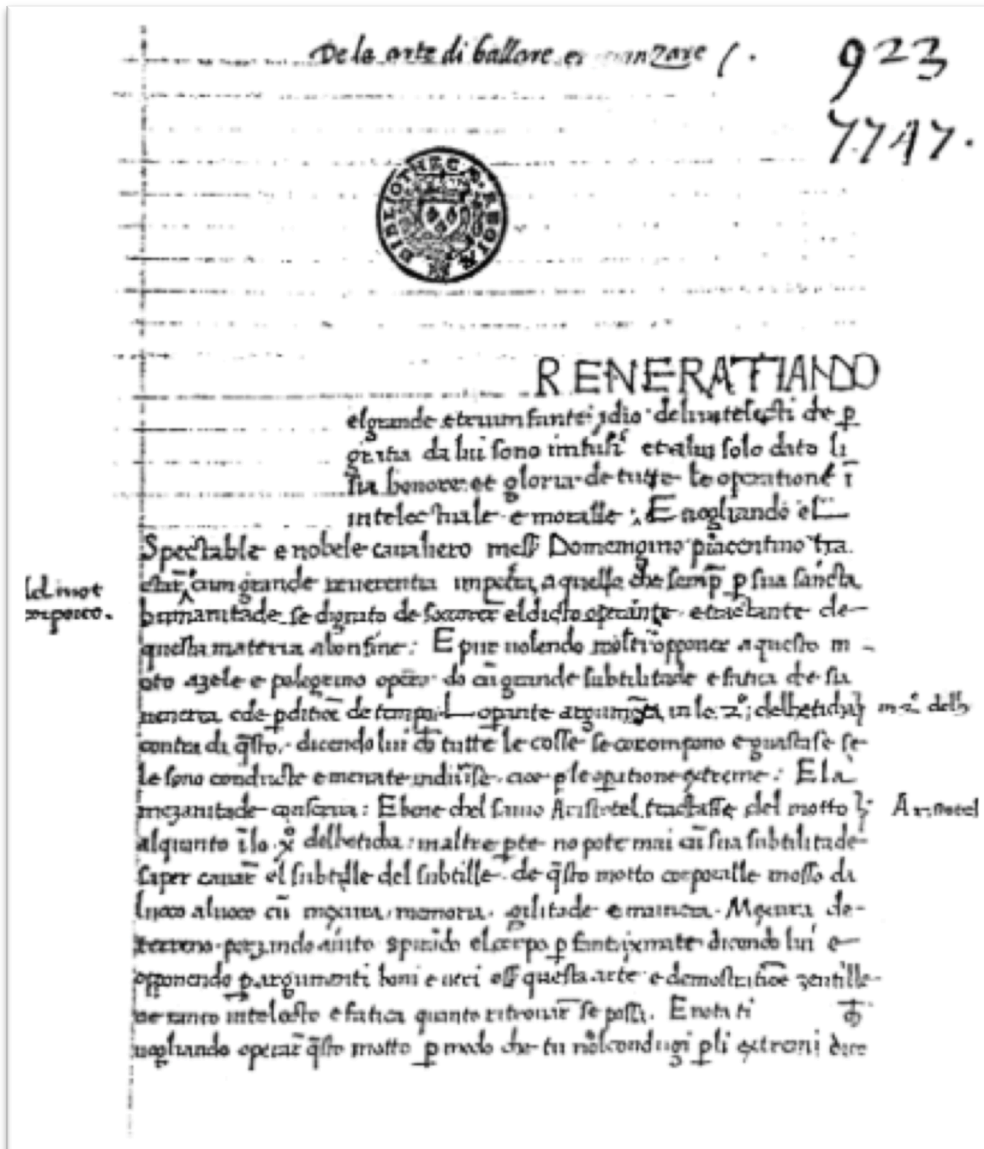 De la arte di ballare et danzare
923
7747.
BIBLIOTHECÆ REGIÆ
RENERATIANDO
el grande e trium fante idio deli intelecti che p
gratia da lui sono infusi et a lui solo dato li
sia honore et gloria de tutte le operatione ī
intelectuale e moralle : E uogliando el
Spectabile e nobele cavaliero mess Domengino piacentino tra
cum grande reuerentia impetra a quello che semp p sua sancta
humanitade se dignato de socorer el dicto operante e tractante de
questa materia al on fine : E pur uolendo molti opponer a questo m
oto azele e pelegrino do cū grande subtilitade e fatica che sia
e de pditiōe de tempo L opante in lo 2º delheticha
in 2º delh
contra di qsto dicendo lui ch tutte le cosse se corompono e guastase se
le sono conducte e menate indiuise cioe p le opatione extreme : E la
mezanitade conserua : E bene chel sauio Aristotel tractasse del motto
Aristotel
alquanto ī lo Xº delheticha : in altre pte no pote mai cū sua subtilitade
saper cauar el subtille del subtille de qsto motto corporalle mosso da
luoco a luoco cū mexura memoria agilitade e maniera Mexura de
terreno aiuto el corpo p dicendo lui e
opponendo p argumenti boni e ueri questa arte e demostratiōe zentille
de tanto intelecto e fatica quanto ritrouar se possa. E nota ti
uogliando operar qsto motto p modo che tu nol condugi p li extremi dice